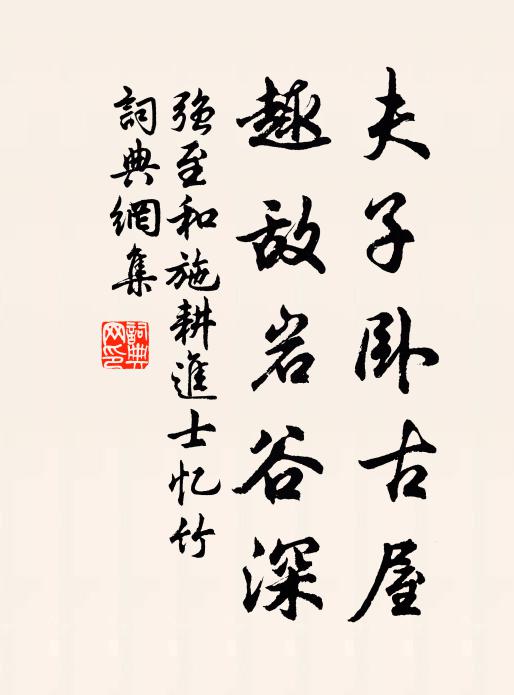 夫子卧古屋
趣敌岩谷深
强至和施耕進士忆竹
詞典網集
詞典
网印